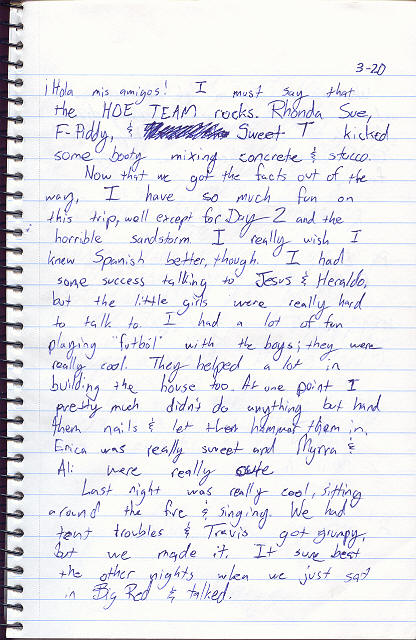 3-20
¡Hola mis amigos! I must say that
the HOE TEAM rocks. Rhonda Sue,
F-Paddy, & Sweet T kicked
some booty mixing concrete & stucco.
Now that we got the facts out of the
way, I have so much fun on
this trip, well except for Day 2 and the
horrible sandstorm. I really wish I
knew Spanish better, though. I had
some success talking to Jesus & Heraldo,
but the little girls were really hard
to talk to. I had a lot of fun
playing "futból" with the boys; they were
really cool. They helped a lot in
building the house too. At one point I
pretty much didn't do anything but hand
them nails & let them hammer them in.
Erica was really sweet and Myrra &
Ali were really cute
Last night was really cool, sitting
around the fire & singing. We had
tent troubles & Travis got grumpy,
but we made it. It sure beat
the other nights when we just sat
in Big Red & talked.